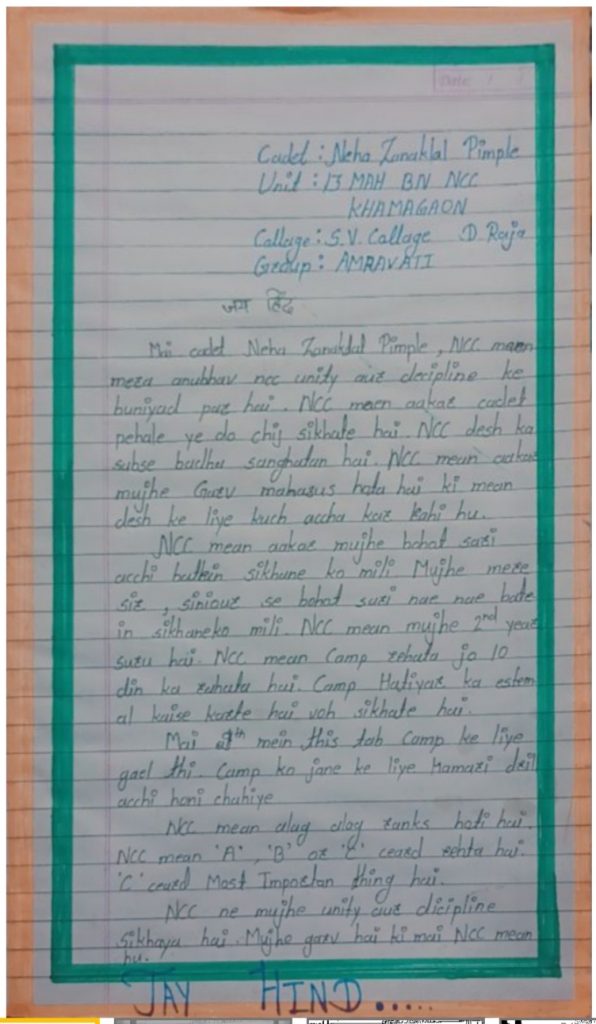 Date: / /
Cadet : Neha Zanaklal Pimple
Unit : 13 MAH BN NCC
KHAMAGAON
Callage : S.V. Callage D. Raja
Group : AMRAVATI
जय हिंद
Mai cadet Neha Zanaklal Pimple, NCC mean
meza anubhav ncc unity auz decipline ke
buniyad paz hai. NCC mean aakaz cadet
pehale ye do chij sikhate hai. NCC desh ka
subse badhu sanghatan hai. NCC mean aakaz
mujhe Gazv mahasus hota hai ki mean
desh ke liye kuch accha kaz Rahi hu.
NCC mean aakaz mujhe bohot sazi
acchi buttein sikhune ko mili Mujhe meze
siz, siniouz se bohot suzi nae nae bate
in sikhaneko mili. NCC mean mujhe 2nd yeaz
suzu hai. NCC mean Camp zehata jo 10
din ka zahata hai. Camp Hatiyaz ka estem
al kaise kazte hai voh sikhate hai.
Mai th mein this tab Camp ke liye
gael thi. Camp ko jane ke liye Hamazi dzil
acchi honi chahiye
NCC mean alag alag zanks hoti hai.
NCC mean 'A', 'B' oz 'C' ceazd zehta hai.
'C' ceazd Most Impoztan thing hai.
NCC ne mujhe unity auz dicipline
sikhaya hai. Mujhe gazv hai ki mai NCC mean
hu.
JAY HIND.....